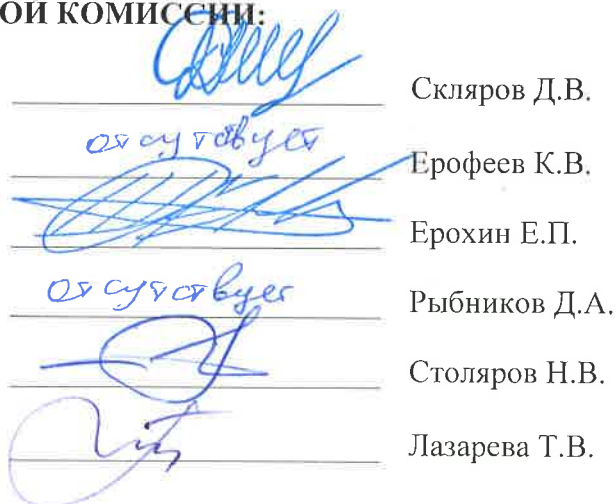 ОЙ КОМИССИИ:
Скляров Д.В.
отсутствует Ерофеев К.В.
Ерохин Е.П.
отсутствует Рыбников Д.А.
Столяров Н.В.
Лазарева Т.В.